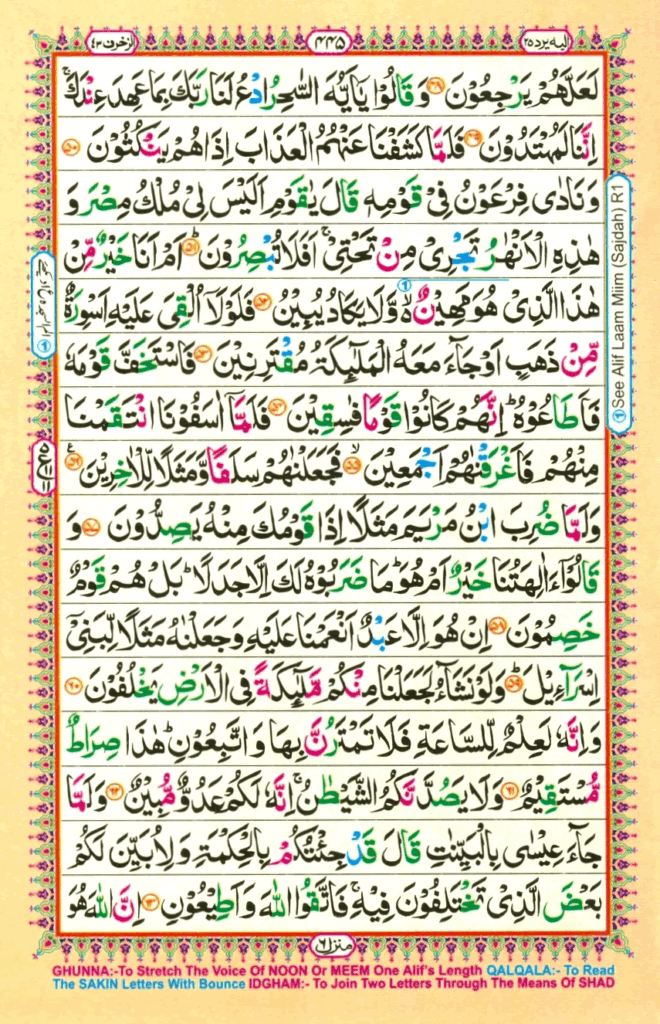 الزخرف ٤٣
٤٤٥
اليه يرد ٢٥
لَعَلَّهُمْ يَرْجِعُوْنَ ﴿٤٨﴾ وَقَالُوْا يٰۤاَيُّهَ السّٰحِرُ ادْعُ لَنَا رَبَّكَ بِمَا عَهِدَ عِنْدَكَ ۚ
اِنَّنَا لَمُهْتَدُوْنَ ﴿٤٩﴾ فَلَمَّا كَشَفْنَا عَنْهُمُ الْعَذَابَ اِذَا هُمْ يَنْكُثُوْنَ ﴿٥٠﴾
وَنَادٰى فِرْعَوْنُ فِيْ قَوْمِهٖ قَالَ يٰقَوْمِ اَلَيْسَ لِيْ مُلْكُ مِصْرَ وَ
هٰذِهِ الْاَنْهٰرُ تَجْرِيْ مِنْ تَحْتِيْ ۚ اَفَلَا تُبْصِرُوْنَ ﴿٥١﴾ اَمْ اَنَا خَيْرٌ مِّنْ
هٰذَا الَّذِيْ هُوَ مَهِيْنٌ ۙ۬ وَّلَا يَكَادُ يُبِيْنُ ﴿٥٢﴾ فَلَوْلَاۤ اُلْقِيَ عَلَيْهِ اَسْوِرَةٌ
مِّنْ ذَهَبٍ اَوْ جَآءَ مَعَهُ الْمَلٰٓئِكَةُ مُقْتَرِنِيْنَ ﴿٥٣﴾ فَاسْتَخَفَّ قَوْمَهٗ
فَاَطَاعُوْهُ ؕ اِنَّهُمْ كَانُوْا قَوْمًا فٰسِقِيْنَ ﴿٥٤﴾ فَلَمَّاۤ اٰسَفُوْنَا انْتَقَمْنَا
مِنْهُمْ فَاَغْرَقْنٰهُمْ اَجْمَعِيْنَ ۙ﴿٥٥﴾ فَجَعَلْنٰهُمْ سَلَفًا وَّمَثَلًا لِّلْاٰخِرِيْنَ ﴿٥٦﴾
وَلَمَّا ضُرِبَ ابْنُ مَرْيَمَ مَثَلًا اِذَا قَوْمُكَ مِنْهُ يَصِدُّوْنَ ﴿٥٧﴾ وَ
قَالُوْۤا ءَاٰلِهَتُنَا خَيْرٌ اَمْ هُوَ ؕ مَا ضَرَبُوْهُ لَكَ اِلَّا جَدَلًا ؕ بَلْ هُمْ قَوْمٌ
خَصِمُوْنَ ﴿٥٨﴾ اِنْ هُوَ اِلَّا عَبْدٌ اَنْعَمْنَا عَلَيْهِ وَجَعَلْنٰهُ مَثَلًا لِّبَنِيْۤ
اِسْرَآءِيْلَ ؕ﴿٥٩﴾ وَلَوْ نَشَآءُ لَجَعَلْنَا مِنْكُمْ مَّلٰٓئِكَةً فِي الْاَرْضِ يَخْلُفُوْنَ ﴿٦٠﴾
وَاِنَّهٗ لَعِلْمٌ لِّلسَّاعَةِ فَلَا تَمْتَرُنَّ بِهَا وَاتَّبِعُوْنِ ؕ هٰذَا صِرَاطٌ
مُّسْتَقِيْمٌ ﴿٦١﴾ وَلَا يَصُدَّنَّكُمُ الشَّيْطٰنُ ۚ اِنَّهٗ لَكُمْ عَدُوٌّ مُّبِيْنٌ ﴿٦٢﴾ وَلَمَّا
جَآءَ عِيْسٰى بِالْبَيِّنٰتِ قَالَ قَدْ جِئْتُكُمْ بِالْحِكْمَةِ وَلِاُبَيِّنَ لَكُمْ
بَعْضَ الَّذِيْ تَخْتَلِفُوْنَ فِيْهِ ۚ فَاتَّقُوا اللّٰهَ وَاَطِيْعُوْنِ ﴿٦٣﴾ اِنَّ اللّٰهَ هُوَ
منزل ٦
① See Alif Laam Miim (Sajdah) R1
GHUNNA:-To Stretch The Voice Of NOON Or MEEM One Alif's Length QALQALA:- To Read
The SAKIN Letters With Bounce IDGHAM:- To Join Two Letters Through The Means Of SHAD